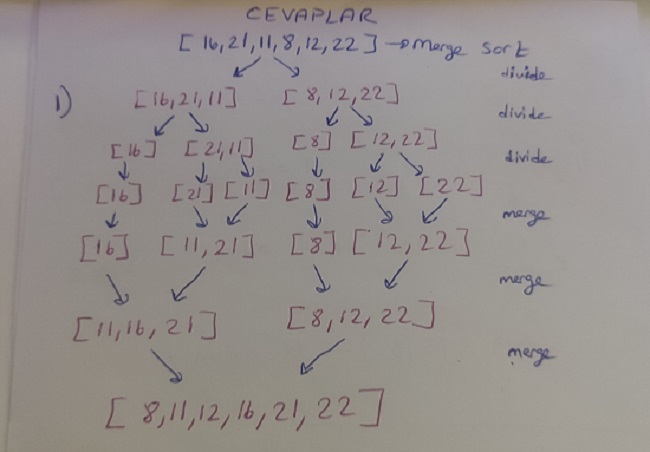 CEVAPLAR
[16,21,11,8,12,22] → merge sort
divide
1) [16,21,11] [8,12,22]
divide
[16] [21,11] [8] [12,22]
divide
[16] [21] [11] [8] [12] [22]
merge
[16] [11,21] [8] [12,22]
merge
[11,16,21] [8,12,22]
merge
[8,11,12,16,21,22]